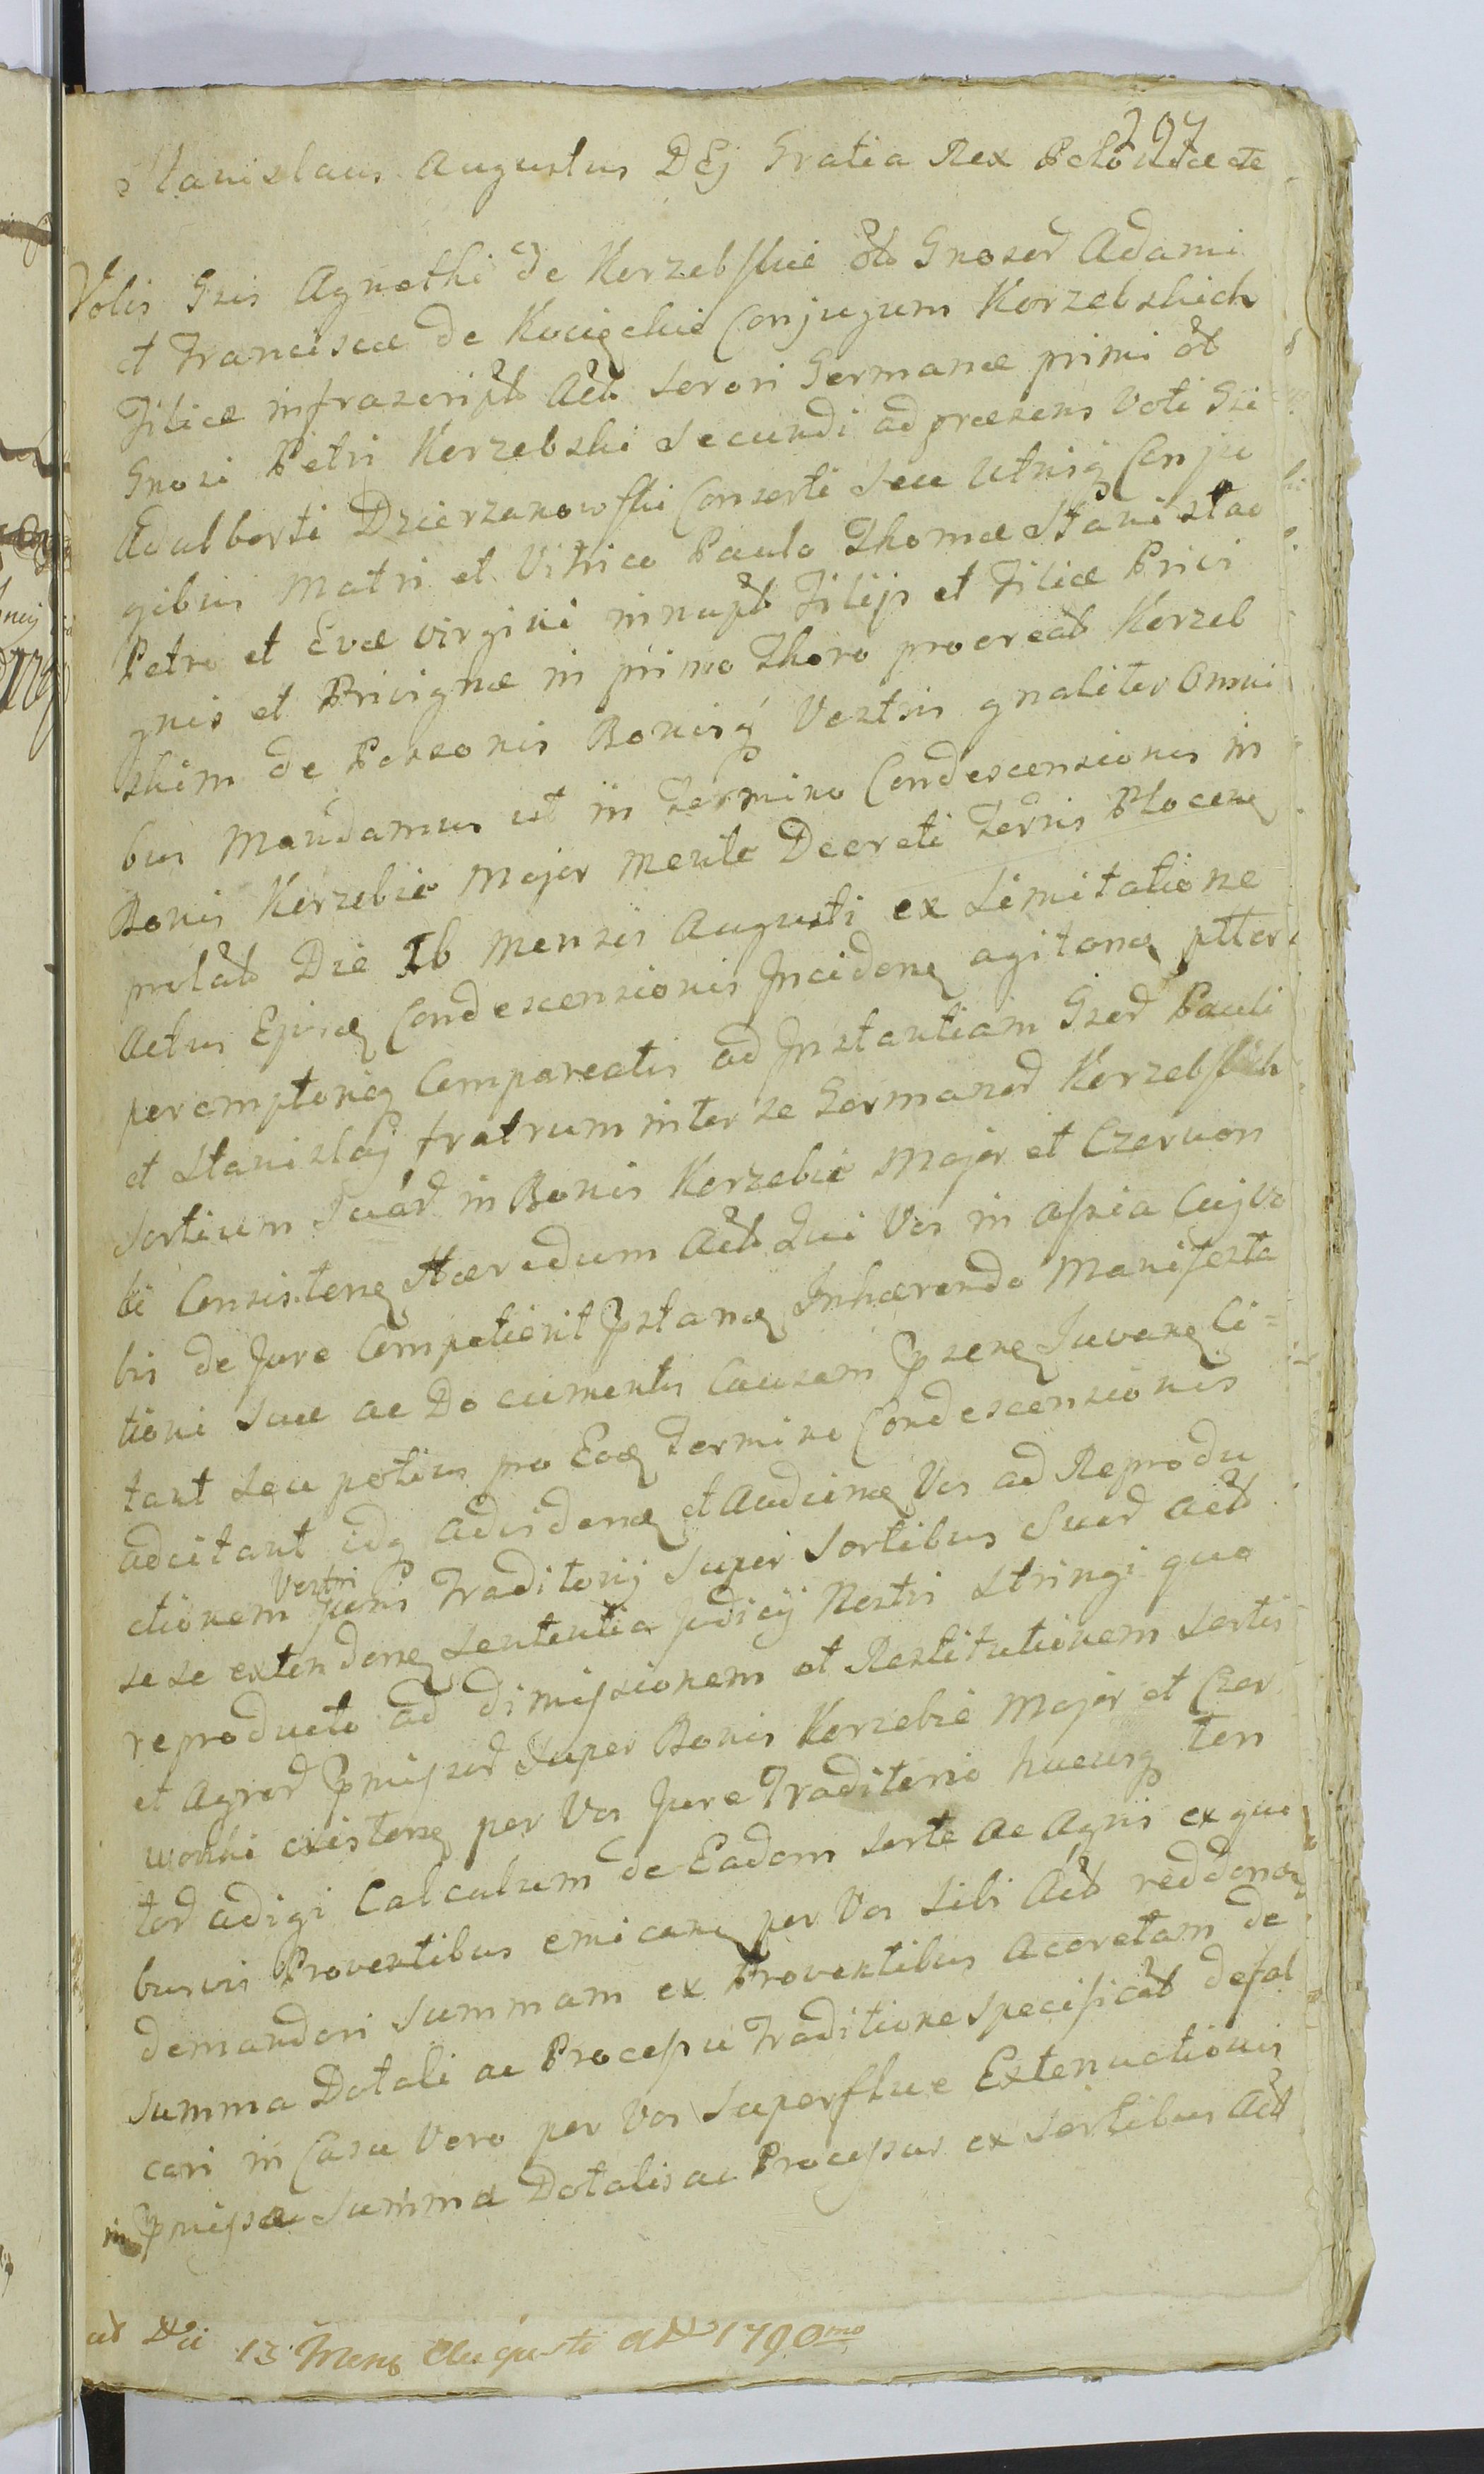 207
Stanislaus Augustus DEj Gratia Rex Polo
Vobis Gsis Agnethi de Korzebskie olt Gnosor Adami
et Francisca de Kocięckie Conjugum Korzebskich
Filiæ infrascript Act Sorori Germanæ primi olt
Gnosi Petri Korzebski Secundi ad præsens Voti Gsi
Adalberti Dzierzanowski Consorti seu Utrisq Conju
gibus Matri et Vitrico Paulo Thomæ Stanislao
Petro et Evæ Virgini innupt Filijs et Filiæ Privi
gnis et Privignæ in primo Thoro procreat Korzeb
skim de Personis Bonisq Vestris gnaliter Omni
bus Mandamus ut in Termino Condescensionis in
Bonis Korzebie Major mente Decreti Terris Plocens
prolat Die 16 Mensis Augusti ex Limitatione
Actus Ejusq Condescensionis Inciden agitan ptter
peremptorieq Compareatis ad Instantiam Gsor Pauli
et Stanislaj Fratrum inter se Germanor Korzebskich
Sortium Suar in Bonis Korzebie Major et Czerwon
ki Consisten Hæredum Act Qui Vos in assia Cujvs
bis de Jure Competierit Instan Inhærendo Manifesta
tioni Suæ ac Documentis Causam Psen Juvan Ci=
tant Seu potius pro Eod Termino Condescensionis
adcitant idq adviden et Audien Vos ad Reprodu
ctionem Juris Vestri Traditorij Super Sortibus Suor Act
se se exten den Sententia Judicij Nostri stringi quo
reproducto ad dimissionem et Restitutionem Sortis
et Agror Pmissor Super Bonis Korzebie Major et Czer
wonki existen per Vos Jure Traditorio hucusq ten
tor adigi Calculum de Eadem Sorte ac Agris ex qui
busvis Proventibus emican per Vos Sibi Act redden
demandari Summam ex Proventibus Accretam de
Summa Dotali ac Processu Traditione specificat defal
cari in Casu Vero per Vos Superflue Extenuationis
in Pmissæ Summæ Dotalis ac Processus ex Sortibus Act
13 Mens Augusti 1790mo